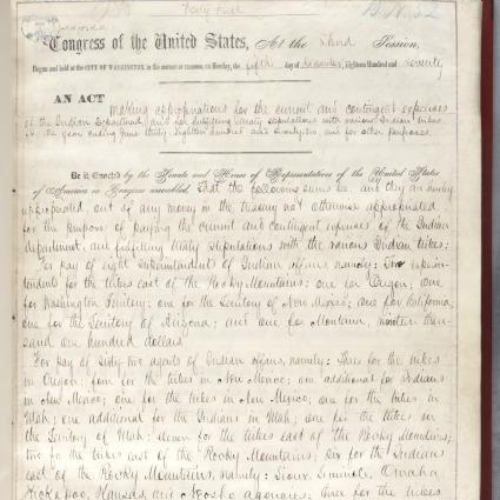 Forty First
Congress of the United States, At the Third Session,
Begun and held at the CITY OF WASHINGTON, in the District of Columbia, on Monday, the fifth day of December, Eighteen Hundred and seventy
AN ACT making appropriations for the current and contingent expenses
of the Indian Department, and for fulfilling treaty stipulations with various Indian tribes
for the year ending June thirty, eighteen hundred and seventy-two, and for other purposes.
Be it Enacted by the Senate and House of Representatives of the United States
of America in Congress assembled, That the following sums be, and they are hereby
appropriated, out of any money in the treasury not otherwise appropriated
for the purpose of paying the current and contingent expenses of the Indian
department, and fulfilling treaty stipulations with the various Indian tribes:
For pay of eight superintendents of Indian affairs, namely: Two superin-
tendents for the tribes east of the Rocky Mountains; one for Oregon; one
for Washington Territory; one for the Territory of New Mexico; one for California;
one for the Territory of Arizona; and one for Montana, nineteen thou-
sand one hundred dollars
For pay of sixty-two agents of Indian affairs, namely: three for the tribes
in Oregon; four for the tribes in New Mexico; one additional for Indians
in New Mexico; one for the tribes in New Mexico; one for the tribes in
Utah; one additional for the Indians in Utah; one for the tribes in
the Territory of Utah; eleven for the tribes east of the Rocky Mountains;
two for the tribes east of the Rocky Mountains; six for the Indians
east of the Rocky Mountains, namely: Sioux, Seminole, Omaha
Kickapoo, Kansas, and Neosho agencies; three for the tribes